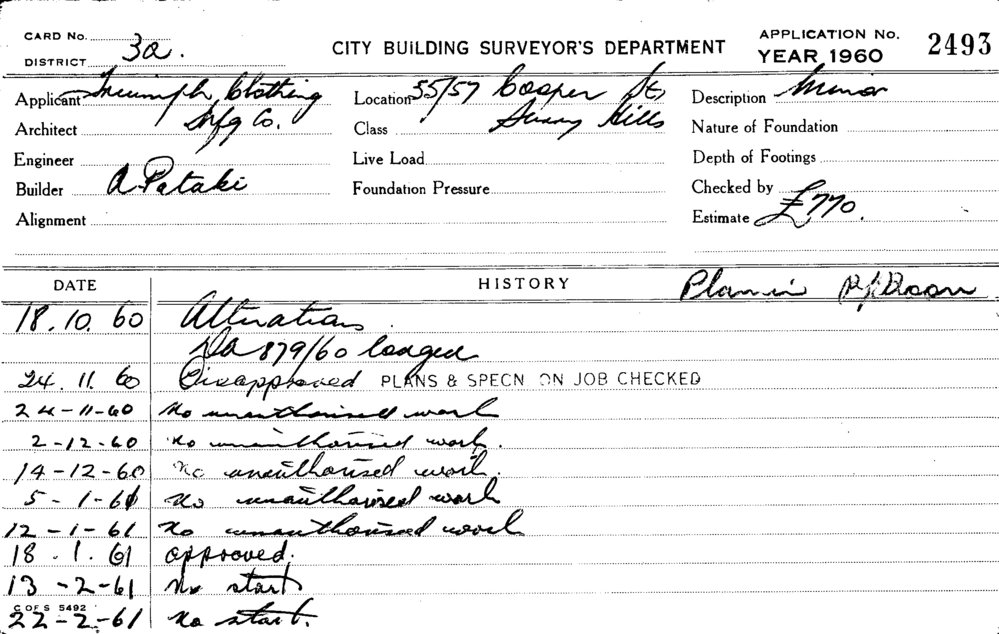 CARD No.
DISTRICT 3a.
CITY BUILDING SURVEYOR'S DEPARTMENT
APPLICATION No. 2493
YEAR 1960
Applicant Triumph Clothing
Mfg Co.
Location 55/57 Cooper St,
Surry Hills
Description Minor
Architect
Class
Nature of Foundation
Engineer
Live Load
Depth of Footings
Builder A Pataki
Foundation Pressure
Checked by
Alignment
Estimate £770.
DATE HISTORY Plan in
18.10.60 Alterations
Da 879/60 lodged
24.11.60 Disapproved PLANS & SPECN ON JOB CHECKED
24-11-60 No unauthorised work
2-12-60 No unauthorised work.
14-12-60 No unauthorised work.
5-1-61 No unauthorised work
12-1-61 No unauthorised work
18.1.61 approved.
13-2-61 No start
C OF S 5492
22-2-61 No start.